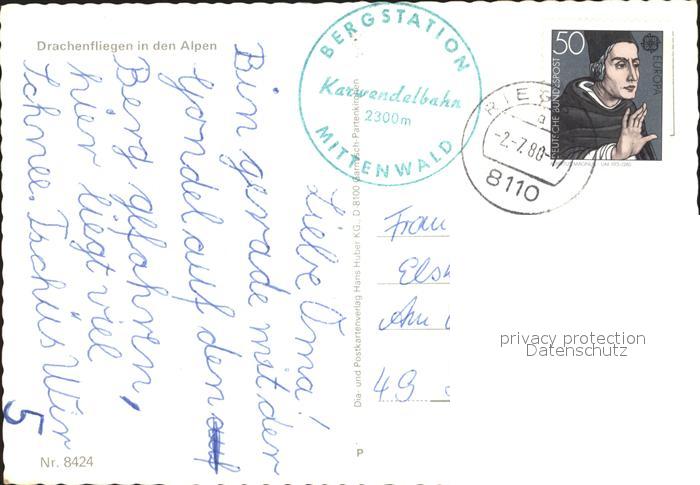 Drachenfliegen in den Alpen
Liebe Oma!
Bin gerade mit der
Gondel auf den
Berg gefahren,
hier liegt viel
Schnee. Tschüs Wir
5
Nr. 8424
Dia- und Postkartenverlag Hans Huber KG., D 8100 Garmisch-Partenkirchen
P
BERGSTATION
Karwendelbahn
2300m
MITTENWALD
-2.-7.80-
8110
50
DEUTSCHE BUNDESPOST
EUROPA
Frau
Els
Am
49
privacy protection
Datenschutz